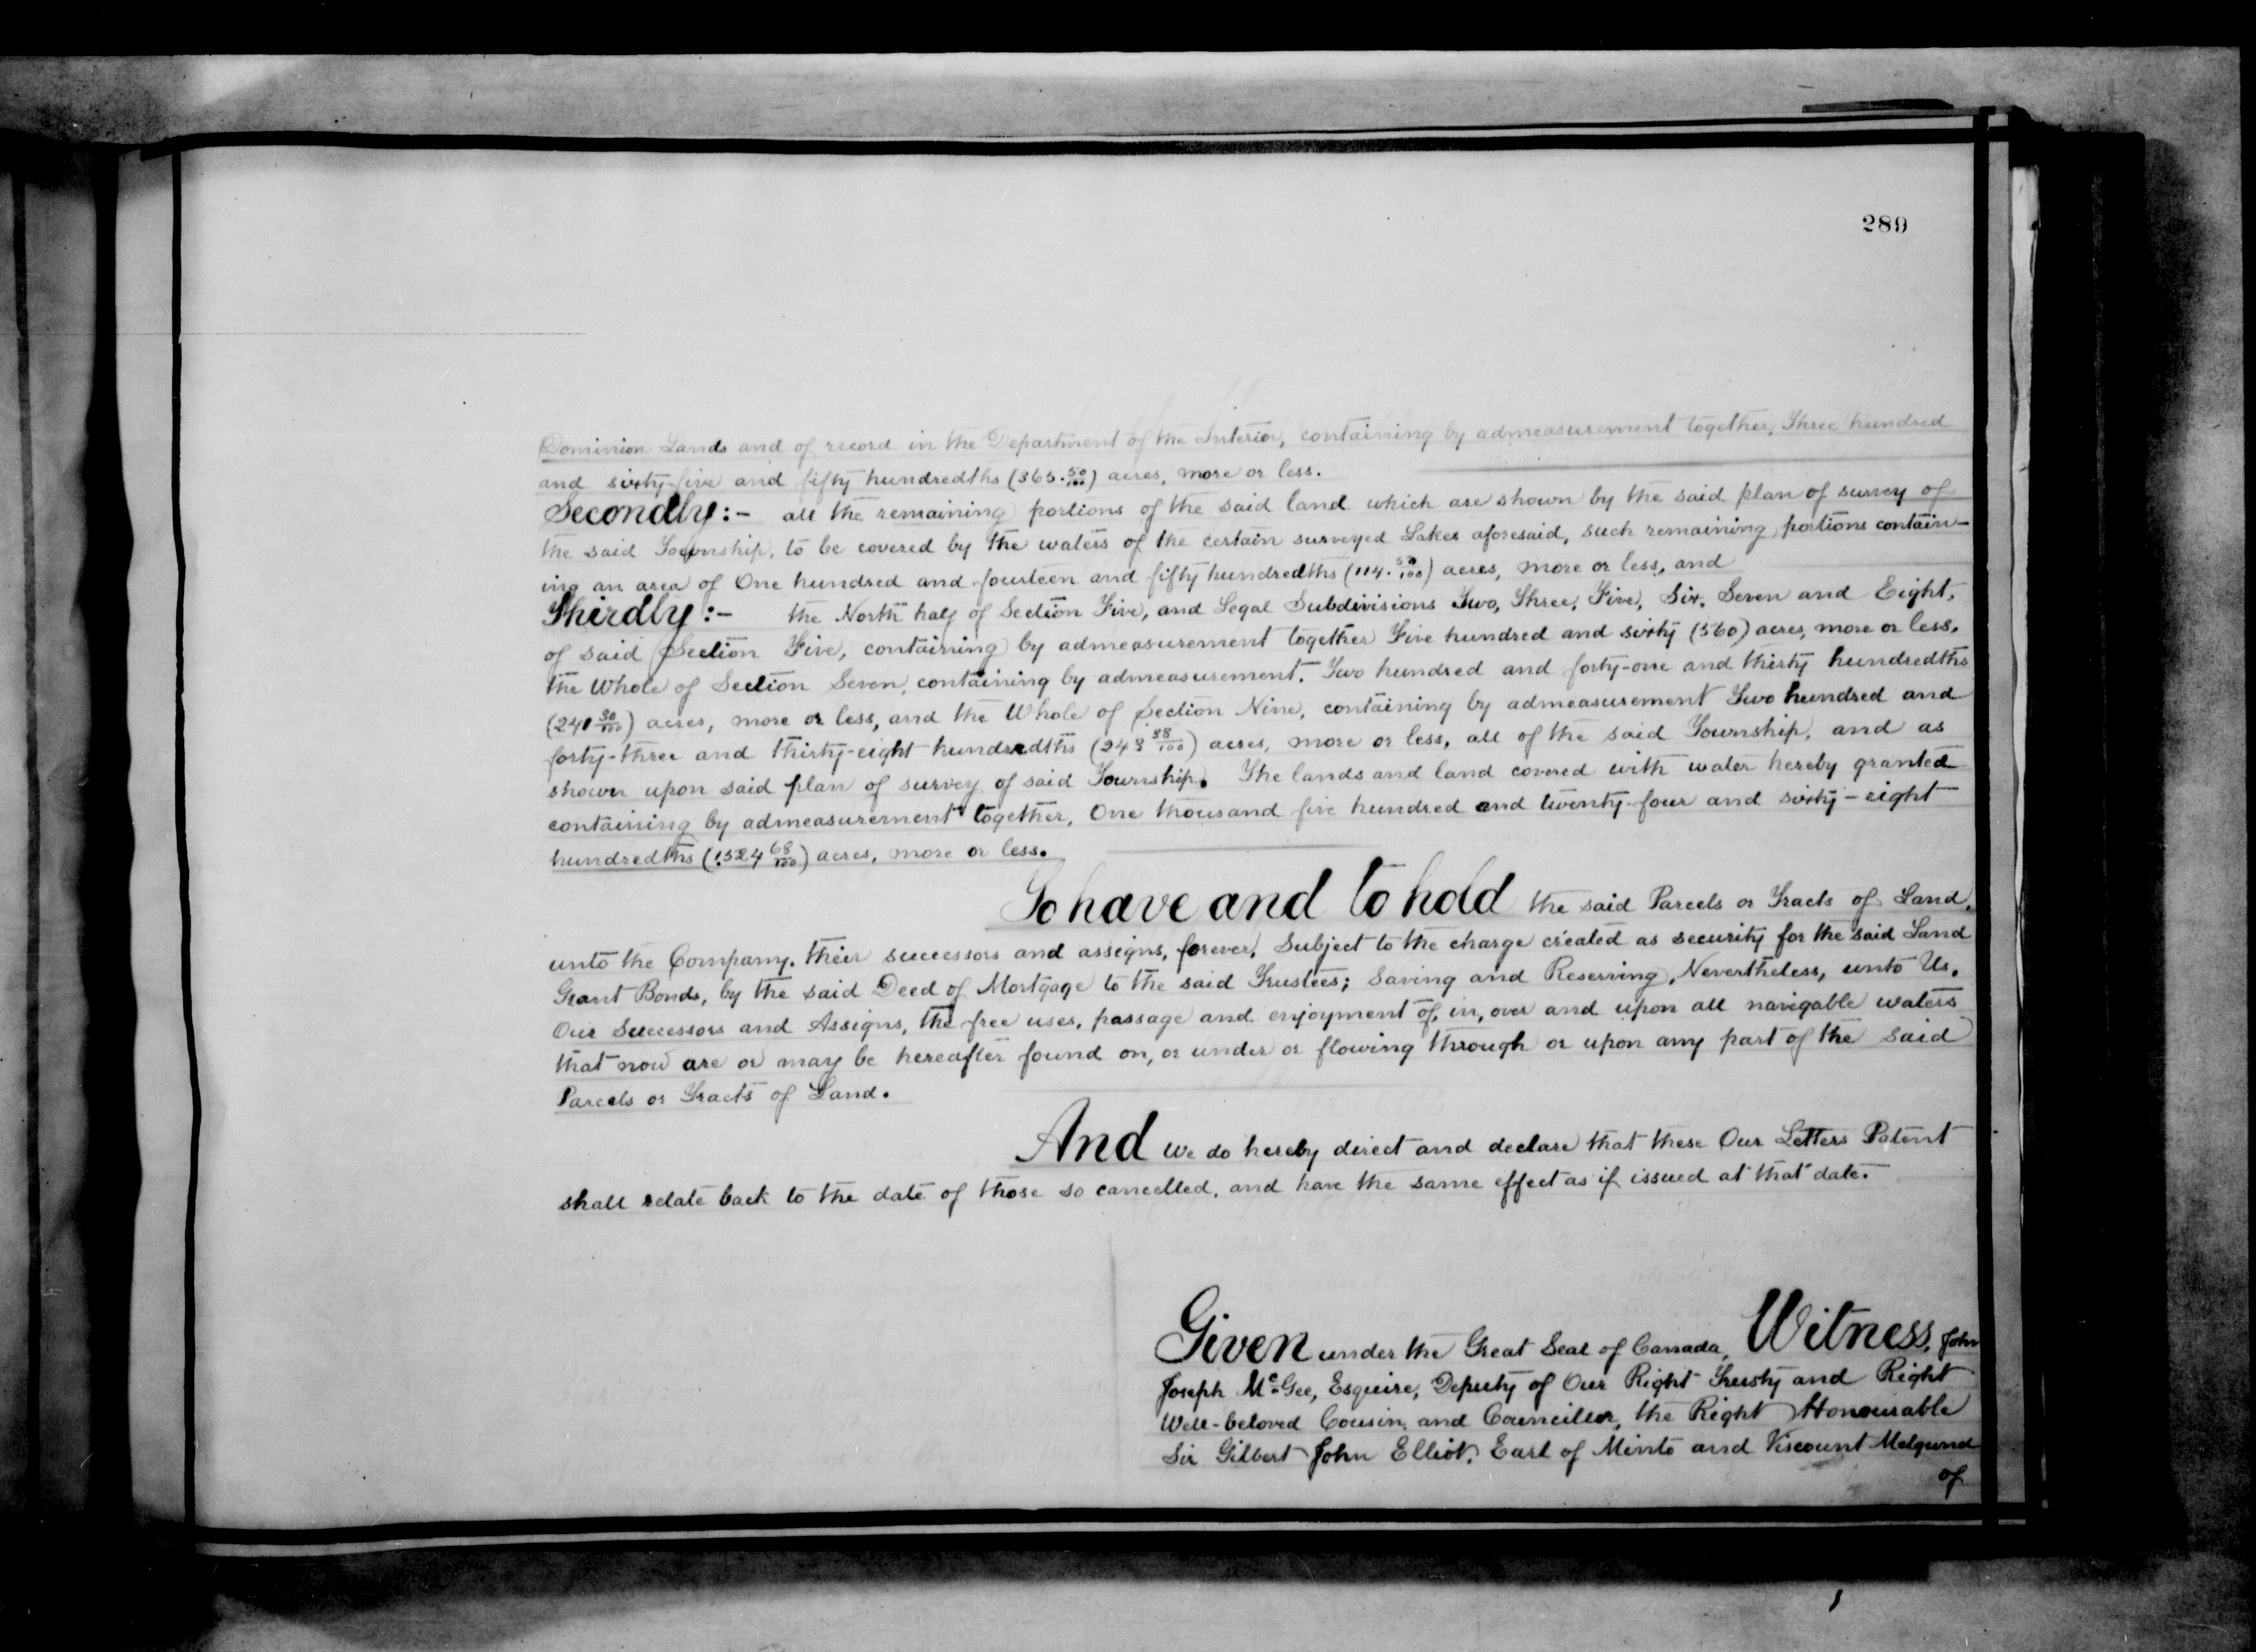 289
Dominion Lands and of record in the Department of the Interior, containing by admeasurement together, Three hundred
and sixty-five and fifty hundredths (365.50/100) acres, more or less.
Secondly:- all the remaining portions of the said land which are shown by the said plan of survey of
the said Township, to be covered by the waters of the certain surveyed Lakes aforesaid, such remaining portions contain-
ing an area of One hundred and fourteen and fifty hundredths (114.50/100) acres, more or less, and
Thirdly:- the North half of Section Five, and Legal Subdivisions Two, Three, Five, Six, Seven and Eight,
of said Section Five, containing by admeasurement together Five hundred and sixty (560) acres, more or less,
the Whole of Section Seven, containing by admeasurement, Two hundred and forty-one and thirty hundredths
(241 30/100) acres, more or less, and the Whole of Section Nine, containing by admeasurement Two hundred and
forty-three and thirty-eight hundredths (243 38/100) acres, more or less, all of the said Township, and as
shown upon said plan of survey of said Township. The lands and land covered with water hereby granted
containing by admeasurement together, One thousand five hundred and twenty-four and sixty-eight
hundredths (1524 68/100) acres, more or less.
To have and to hold the said Parcels or Tracts of Land,
unto the Company, their successors and assigns, forever, Subject to the charge created as security for the said Land
Grant Bonds, by the said Deed of Mortgage to the said Trustees; Saving and Reserving, Nevertheless, unto Us,
Our Successors and Assigns, the free uses, passage and enjoyment of, in, over and upon all navigable waters
that now are or may be hereafter found on, or under or flowing through or upon any part of the said
Parcels or Tracts of Land.
And we do hereby direct and declare that these Our Letters Patent
shall relate back to the date of those so cancelled, and have the same effect as if issued at that date.
Given under the Great Seal of Canada, Witness, John
Joseph McGee, Esquire, Deputy of Our Right Trusty and Right
Well-beloved Cousin and Councillor, the Right Honourable
Sir Gilbert John Elliot, Earl of Minto and Viscount Melgund
of